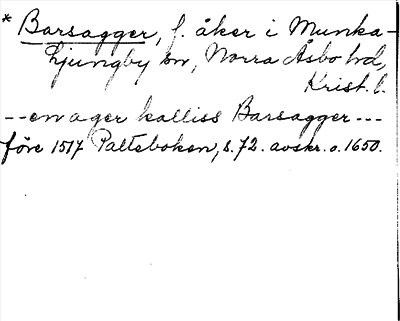 * Barsagger, f. åker i Munka-
Ljungby sn, Norra Åsbo hd,
Krist. l.
-- en ager kalliss Barsagger ---
före 1517 Palteboken, s. 72. avskr. o. 1650.